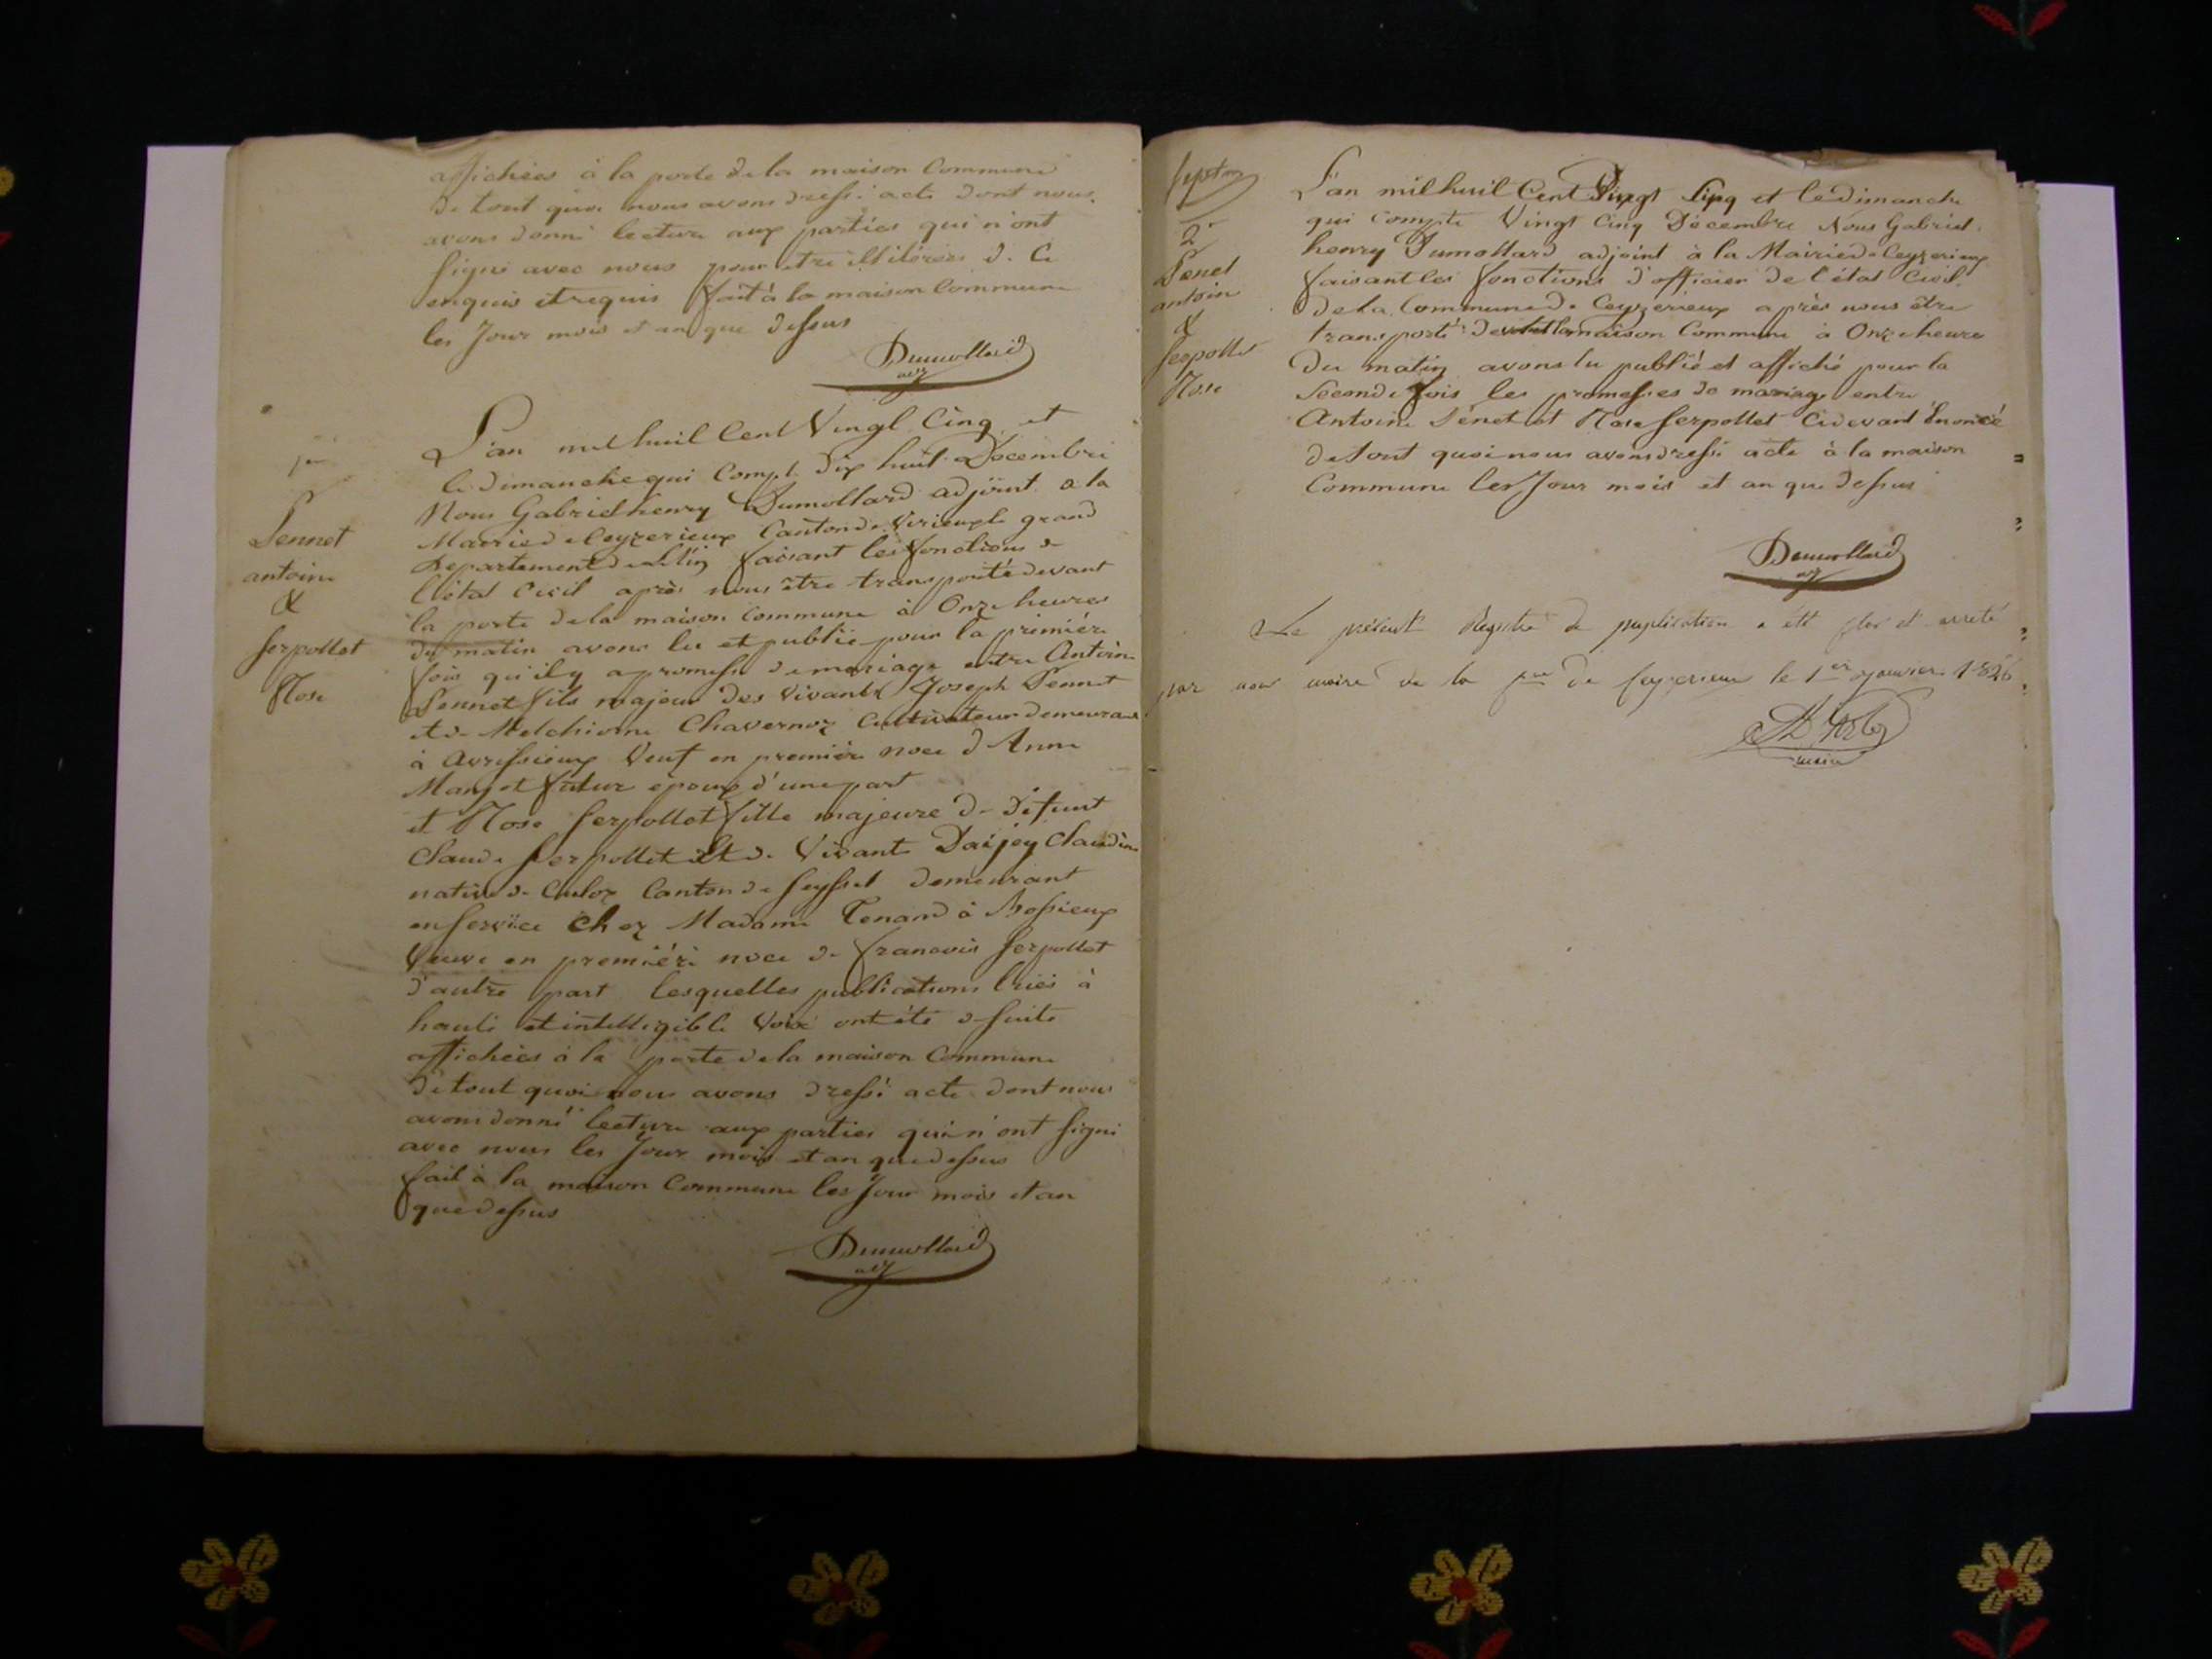 affichées à la porte de la maison Commune
de tout quoi nous avons dressé acte dont nous
avons donné lecture aux parties qui n'ont
signé avec nous pour être illitérées de ce
enquis et requis fait à la maison Commune
les Jour mois et an que dessus
Dumollard
adj
L'an mil huit Cent Vingt Cinq et
le dimanche qui Compte dix huit Décembre
Nous Gabriel henry Dumollard adjoint a la
Mairie de Ceyzerieux Canton de Virieux le grand
Département de L'ain faisant les fonctions de
l'état Civil après nous être transporté devant
la porte de la maison Commune à Onze heures
du matin avons lu et publié pour la première
fois qu'il y a promesse de mariage entre Antoine
Pennet fils majeur des Vivants Joseph Pennet
et de Melchionne Chavernoz Cultivateur demeurant
à Avressieux Veuf en première noce d'Anne
futur epoux d'une part
et Rose Serpollet fille majeure de défunt
Claude Serpollet et de Vivante Claudine
native de Culoz Canton de Seyssel demeurant
en service Chez Madame Tenard à Rossieux
Veuve en première noce de francois Serpollet
d'autre part lesquelles publications lues à
haute et intelligible Voix ont été de suite
affichées à la porte de la maison Commune
de tout quoi nous avons dressé acte dont nous
avons donné lecture aux parties qui n'ont signé
avec nous les Jour mois et an que dessus
fait à la maison Commune les Jour mois et an
que dessus
Dumollard
adj
1er
Pennet
antoine
&
Serpollet
Rose
2e
Penet
antoine
&
Serpollet
Rose
L'an mil huit Cent Vingt Cinq et le dimanche
qui Compte Vingt Cinq Décembre Nous Gabriel
henry Dumollard adjoint à la Mairie de Ceyzerieux
faisant les fonctions d'officier de l'état Civil
de la Commune de Ceyzerieux après nous être
transporté devant la maison Commune à Onze heures
du matin avons lu publié et affiché pour la
Seconde fois les promesses de mariage entre
Antoine Pénet et Rose Serpollet Cidevant Enoncé
de tout quoi nous avons dressé acte à la maison
Commune les Jour mois et an que dessus
Dumollard
adj
Le présent Registre de publication a été clos et arreté
par nous maire de la Cne de Ceyzerieux le 1er janvier 1826
maire